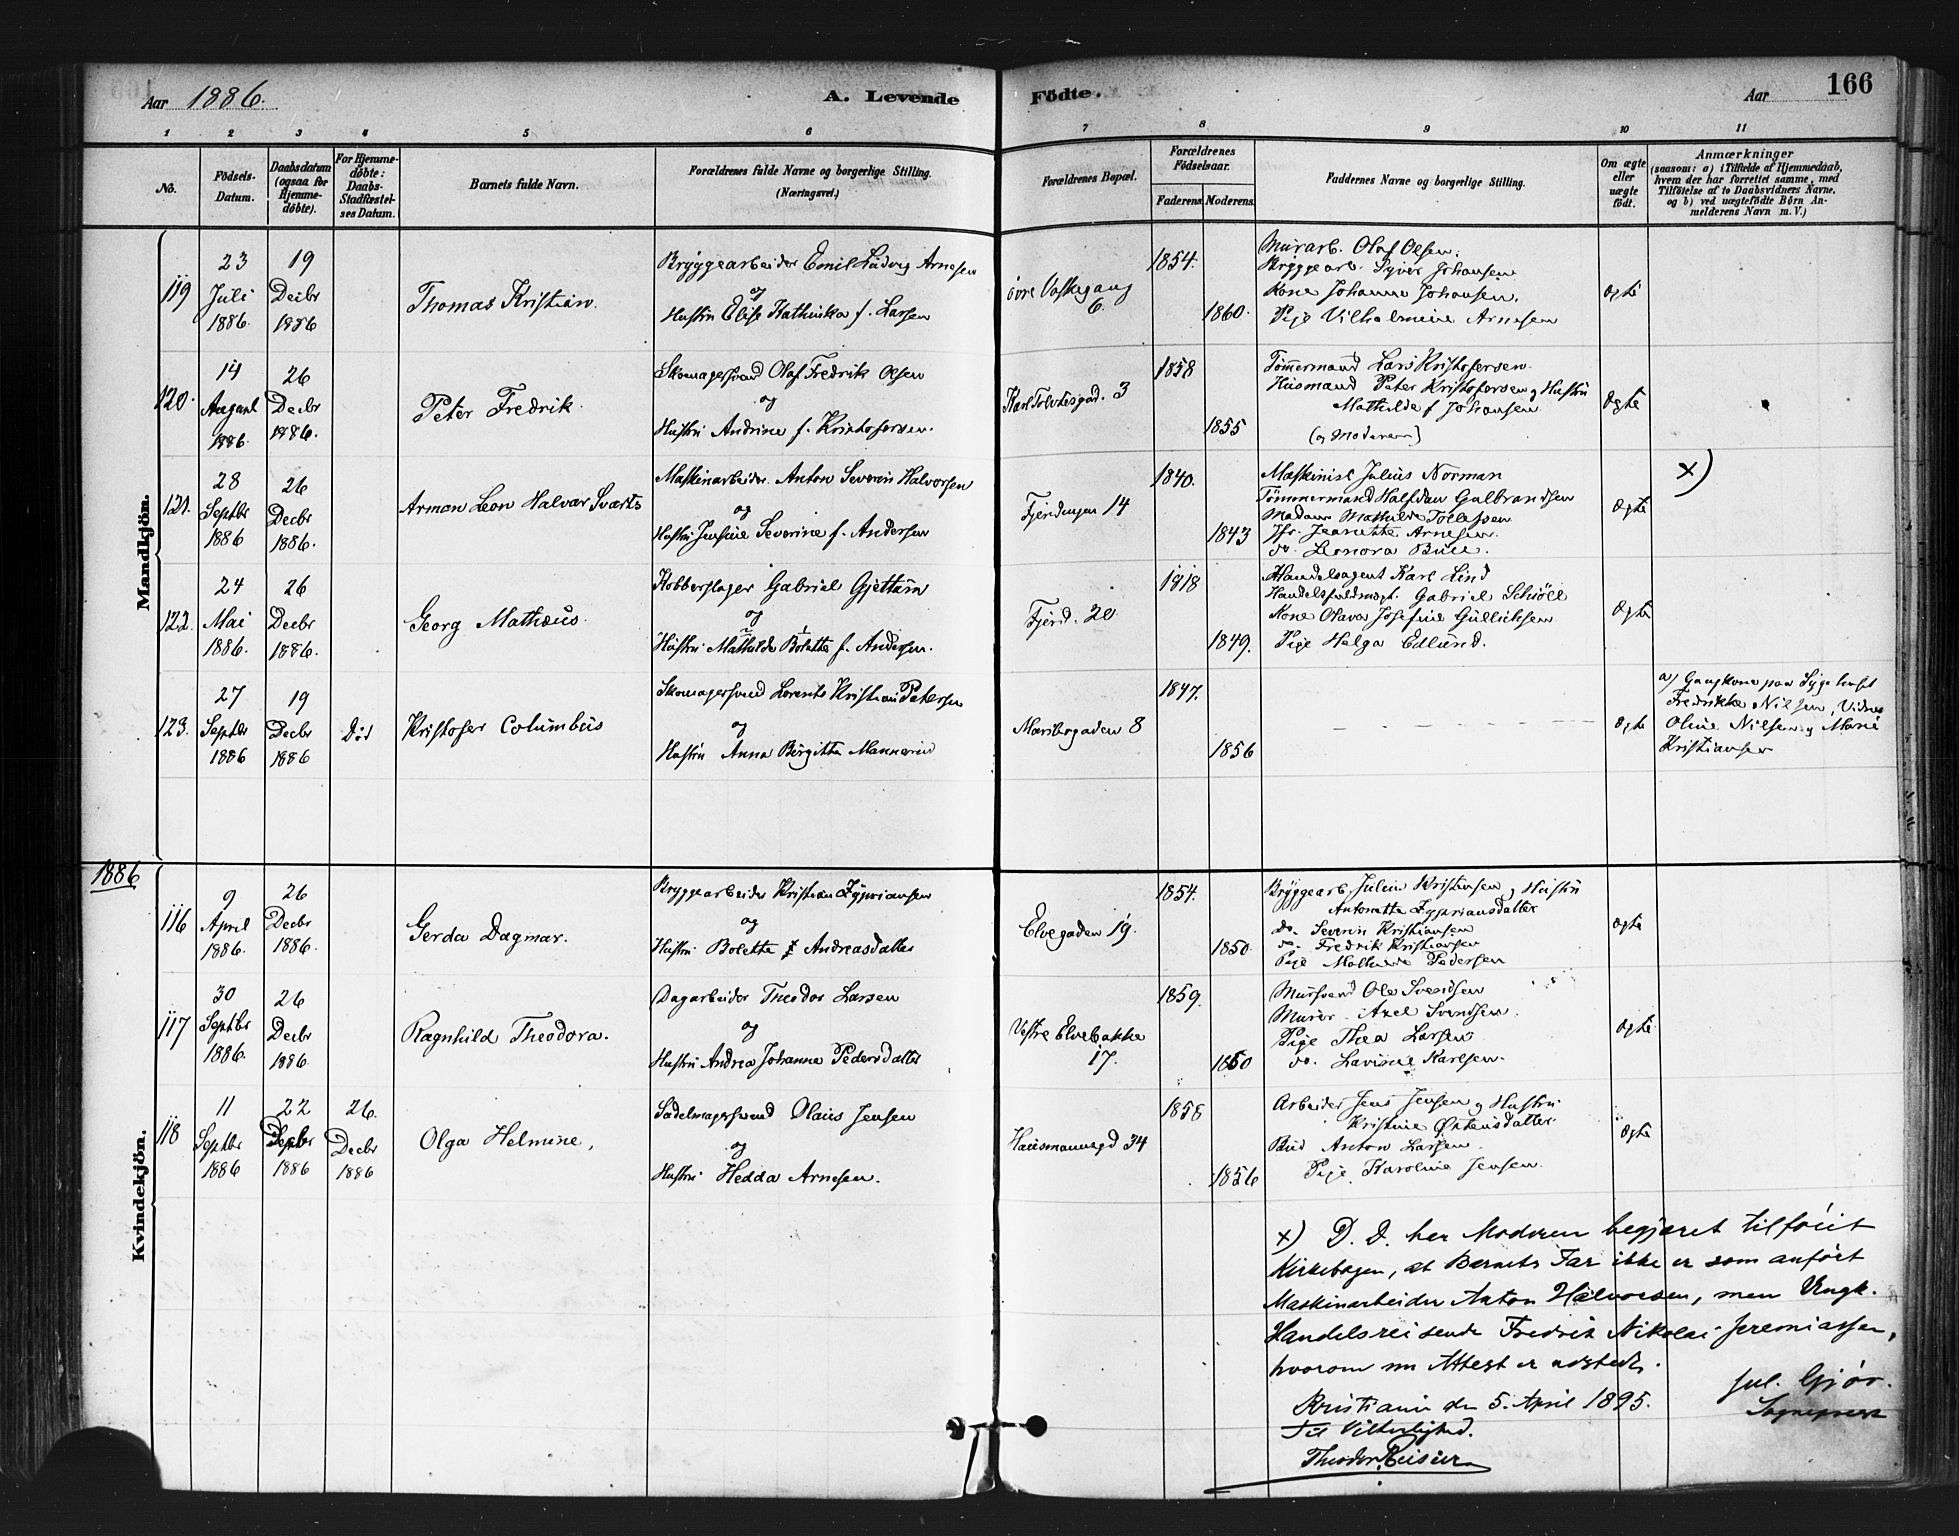 Aar 1886.
A. Levende Födte.
Aar 166
1 2 3 4 5 6 7 8 9 10 11
No.
Födsels-Datum.
Daabsdatum (ogsaa for Hjemme-döbte).
For Hjemme-döbte: Daabs-Stadfæstel-ses Datum.
Barnets fulde Navn.
Forældrenes fulde Navne og borgerlige Stilling. (Næringsvei.)
Forældrenes Bopæl.
Forældrenes Födselsaar.
Faderens Moderens
Faddernes Navne og borgerlige Stilling.
Om ægte eller uægte födt.
Anmærkninger
(saasom: a) i Tilfælde af Hjemmedaab, hvem der har forrettet samme, med Tilföielse af to Daabsvidners Navne, og b) ved uægtefödte Börn An-melderens Navn m. V.)
Mandkjön.
119
23 Juli 1886.
19 Decbr 1886
Thomas Kristian.
Bryggearbeider Emil Ludvig Arnesen
og
Hustru Elise Kathinka f. Larsen
övre Vaskegang 6.
1854.
1860.
Murarb. Olaf Olsen.
Bryggearb. Syver Johansen
Kone Johanne Johansen.
Pige Vilhelmine Arnesen
Ægte
120.
14 August 1886.
26 Decbr 1886.
Peter Fredrik.
Skomagersvend Olaf Fredrik Olsen
og
Hustru Andrine f. Kristofersen.
Karl Tolvtesgad. 3
1858
1855
Tömmermand Lars Kristofersen.
Husmand Peter Kristofersen og Hustru
Mathilde f Johansen
(og Moderen)
Ægte
121.
28 Septbr 1886
26 Decbr 1886.
Arman Leon Halvar Svarts
Maskinarbeider. Anton Severin Halvorsen
og
Hustru Jensine Severine f. Andersen
Fjerdingen 14
1840.
1843
Maskinist Julius Norman
Tömmermand Halfdan Gulbrandsen
Madam Mathilde Tollefsen
Jfr. Jeanette Arnesen.
do. Leonora Bull.
Ægte
x)
122.
24 Mai 1886.
26 Decbr 1886.
Georg Mathæus.
Kobberslager Gabriel Gjettum
og
Hustru Mathilde Bolette f. Andersen.
Fjerd. 20
1818
1849.
Handelsagent Karl Lind
Handelsfuldmægt. Gabriel Schöll
Kone Olava Josefine Gullichsen
Pige Helga Edlund.
Ægte
123.
27 Septbr 1886
19 Decbr 1886
Död
Kristofer Columbus
Skomagersvend Lorents Kristian Petersen
og
Hustru Anna Birgitta Mannerud
Maribogaden 8
1847.
1856
Ægte
a) Gangkone paa Sygehuset
Fredrikke Nilsen, Vidner
Oline Nilsen og Marie
Kristiansen
1886
Kvindekjön.
116
9 April 1886.
26 Decbr 1886.
Gerda Dagmar.
Bryggearbeider Kristian Zyprianssen
og
Hustru Bolette f Andreasdatter
Elvegaden 19.
1854.
1850
Bryggearb. Julius Kristensen og Hustru
Antonette Zypriansdatter
do. Severin Kristiansen
do. Fredrik Kristiansen
Pige Mathilde Pedersen
Ægte
117
30 Septbr 1886.
26 Decbr 1886.
Ragnhild Theodora.
Dagarbeider Theodor Larsen
og
Hustru Andrea Johanne Pedersdatter
Vestre Elvebakke 17.
1859.
1860
Mursvend Ole Svendsen
Murer. Axel Svendsen.
Pige Thea Larsen
do. Lavinie Karlsen.
Ægte
118
11 Septbr 1886
22 Septbr 1886
26. Decbr 1886
Olga Helmine,
Sadelmagersvend Olaus Jensen
og
Hustru Hedda Arnesen.
Hausmannsgd 34
1858
1856
Arbeider Jens Jensen og Hustru
Kristine Östensdatter
Bud Anton Larsen.
Pige. Karoline Jensen.
Ægte
x) D. D. har Moderen begjæret tilföiet
Kirkebogen, at Barnets Far ikke er som anfört
Maskinarbeider Anton Halvorsen, men Ungk.
Handelsreisende Fredrik Nikolai Jeremiassen,
hvorom nu Attest er udstedt.
Kristiania den 5. April 1895.
Jul. Gjör.
Sogneprest
Til Vitterlighed.
Theodor Reisier